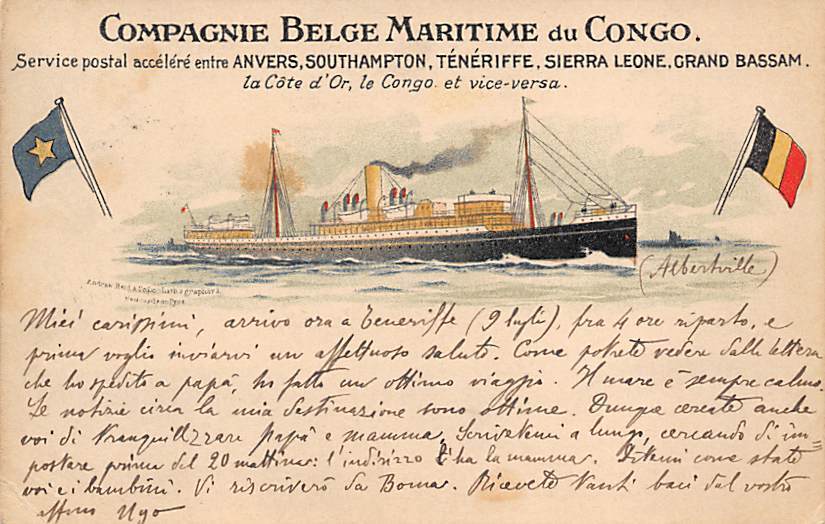 COMPAGNIE BELGE MARITIME du CONGO.
Service postal accéléré entre ANVERS, SOUTHAMPTON, TÉNÉRIFFE, SIERRA LEONE, GRAND BASSAM.
la Côte d'Or, le Congo et vice-versa.
(Albertville)
Miei carissimi, arrivo ora a Teneriffe (9 luglio), fra 4 ore riparto, e
prima voglio inviarvi un affettuoso saluto. Come potrete vedere dalla lettera
che ho spedito a papà, ho fatto un ottimo viaggio. Il mare è sempre calmo.
Le notizie circa la mia destinazione sono ottime. Dunque cercate anche
voi di tranquillizzare Papà e mamma. Scrivetemi a lungo, cercando di im=
postare prima del 20 mattina: l'indirizzo l'ha la mamma. Ditemi come state
voi e i bambini. Vi riscriverò da Boma. Ricevete tanti baci dal vostro
affmo Ugo